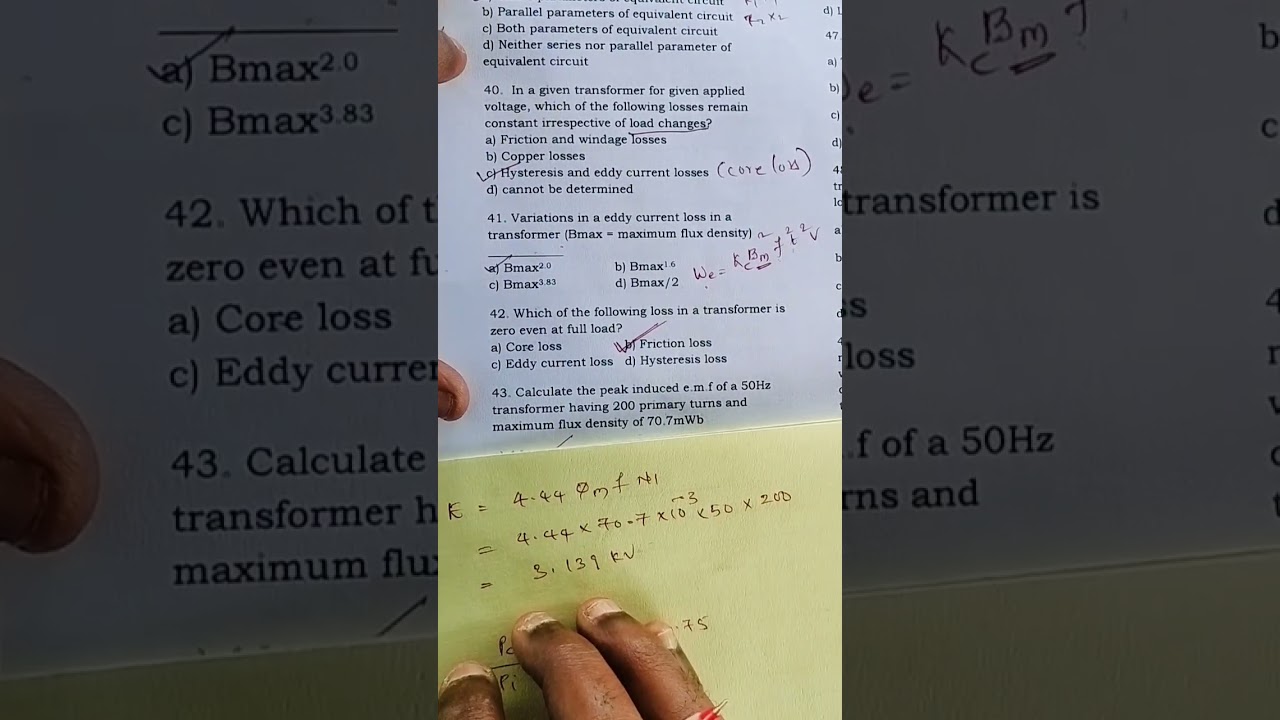 b) Parallel parameters of equivalent circuit
c) Both parameters of equivalent circuit
d) Neither series nor parallel parameter of
equivalent circuit
40. In a given transformer for given applied
voltage, which of the following losses remain
constant irrespective of load changes?
a) Friction and windage losses
b) Copper losses
c) Hysteresis and eddy current losses (core loss)
d) cannot be determined
41. Variations in a eddy current loss in a
transformer (Bmax = maximum flux density) ~
a) Bmax2.0 b) Bmax1.6
c) Bmax3.83 d) Bmax/2
42. Which of the following loss in a transformer is
zero even at full load?
a) Core loss b) Friction loss
c) Eddy current loss d) Hysteresis loss
43. Calculate the peak induced e.m.f of a 50Hz
transformer having 200 primary turns and
maximum flux density of 70.7mWb
E = 4.44 Øm f N1
= 4.44 × 70.7 × 10-3 × 50 × 200
= 3.139 KV
Pi
.75
d)
47.
a)
b)
c)
d)
a) Bmax2.0
c) Bmax3.83
42. Which of t
zero even at fu
a) Core loss
c) Eddy curre
43. Calculate
transformer h
maximum flu
transformer is
loss
f of a 50Hz
rns and